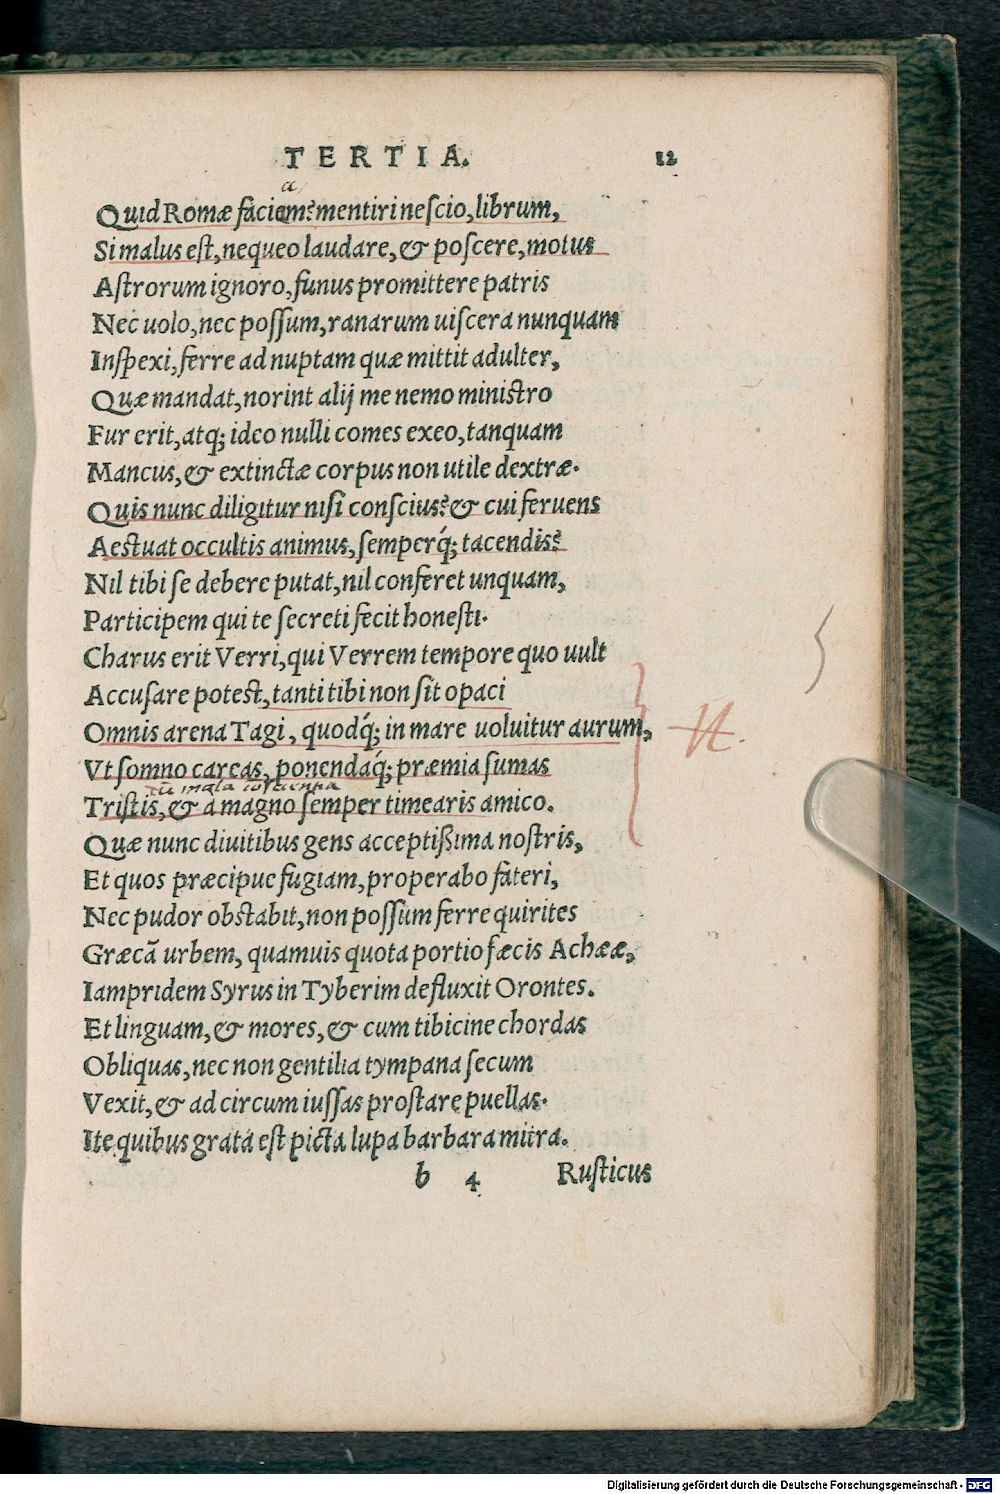 TERTIA. 12
a
Quid Romæ faciam? mentiri nescio, librum,
Si malus est, nequeo laudare, & poscere, motus
Astrorum ignoro, funus promittere patris
Nec uolo, nec possum, ranarum uiscera nunquam
Inspexi, ferre ad nuptam quæ mittit adulter,
Quæ mandat, norint alij me nemo ministro
Fur erit, atq; ideo nulli comes exeo, tanquam
Mancus, & extinctæ corpus non utile dextræ.
Quis nunc diligitur nisi conscius? & cui feruens
Aestuat occultis animus, semperq́; tacendis?
Nil tibi se debere putat, nil conferet unquam,
Participem qui te secreti fecit honesti.
Charus erit Verri, qui Verrem tempore quo uult
Accusare potest, tanti tibi non sit opaci
Omnis arena Tagi, quodq́; in mare uoluitur aurum,
Vt somno careas, ponendaq́; præmia sumas
cū mala
Tristis, & a magno semper timearis amico.
Quæ nunc diuitibus gens acceptißima nostris,
Et quos præcipue fugiam, properabo fateri,
Nec pudor obstabit, non possum ferre quirites
Græcā urbem, quamuis quota portio fæcis Achææ,
Iampridem Syrus in Tyberim defluxit Orontes.
Et linguam, & mores, & cum tibicine chordas
Obliquas, nec non gentilia tympana secum
Vexit, & ad circum iussas prostare puellas.
Ite quibus grata est picta lupa barbara mitra.
b 4 Rusticus
Digitalisierung gefördert durch die Deutsche Forschungsgemeinschaft - DFG